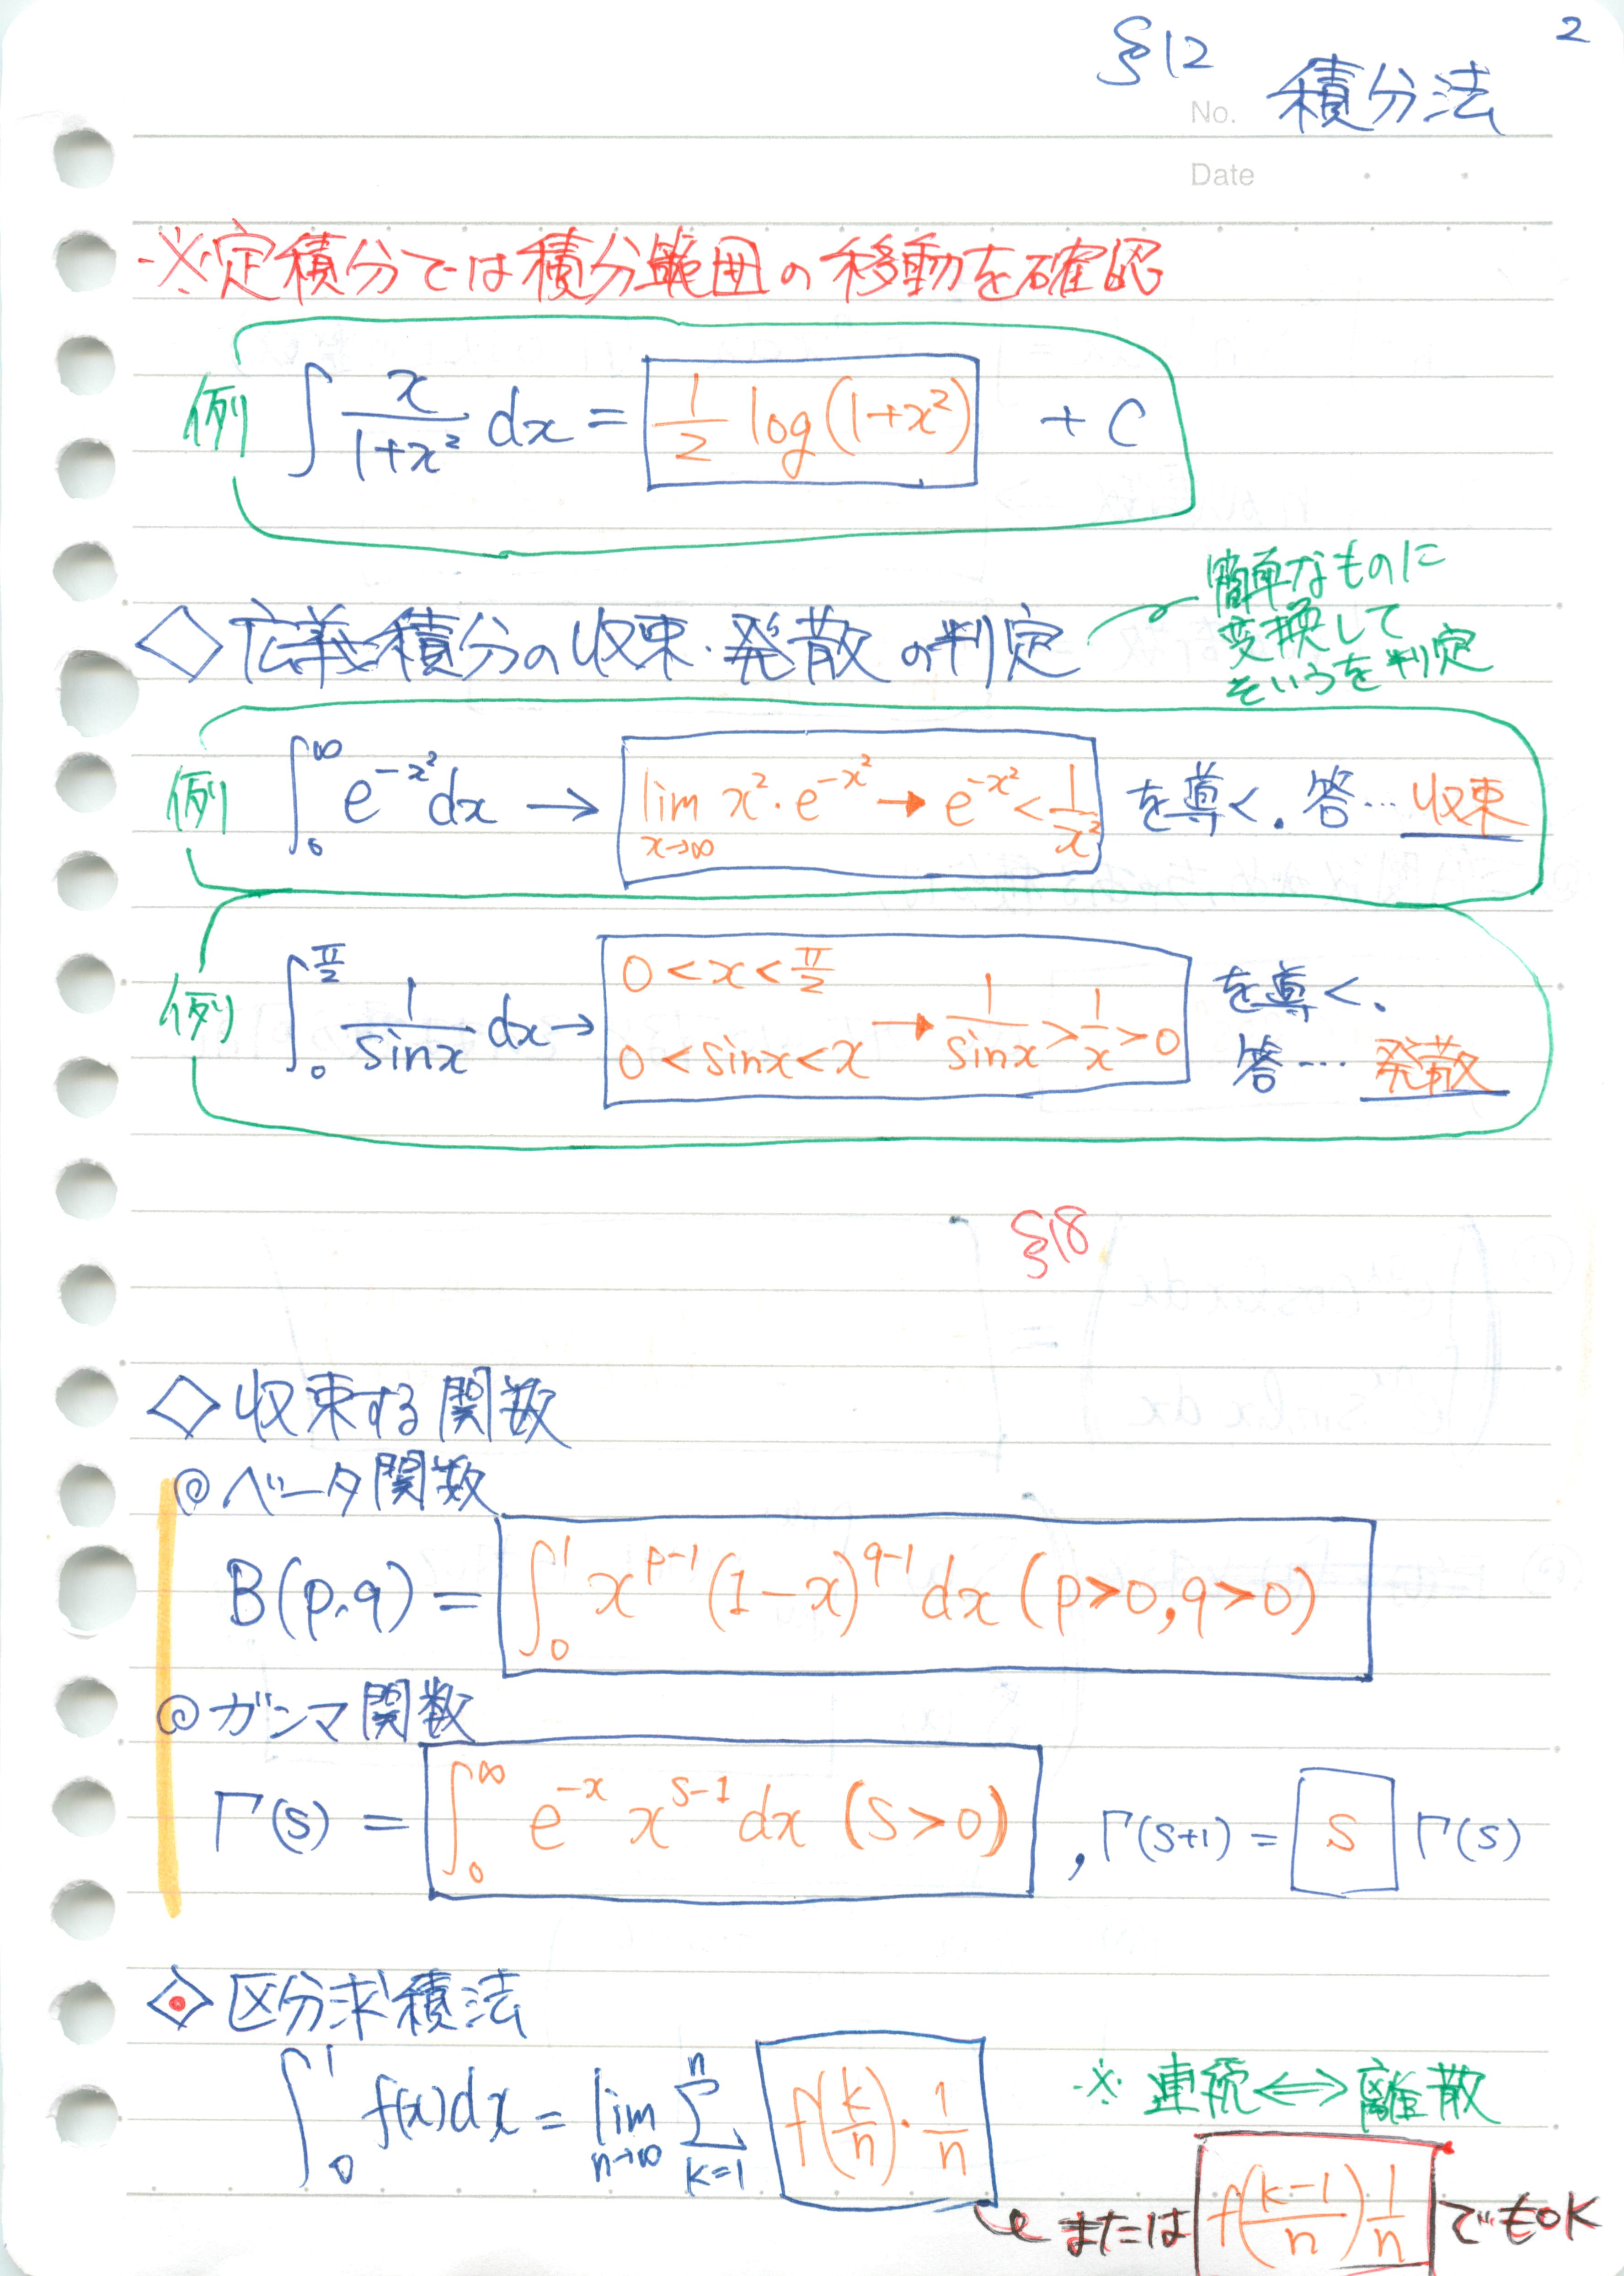 2
§12 積分法
No.
Date
※定積分では積分範囲の移動を確認
例 ∫ x/(1+x²) dx = 1/2 log(1+x²) + C
◇広義積分の収束・発散の判定
簡単なものに
変換して
そいつを判定
例 ∫₀^∞ e^{-x²} dx → lim_{x→∞} x²・e^{-x²} → e^{-x²} < 1/x² を導く. 答…収束
例 ∫₀^{π/2} 1/sinx dx → 0<x<π/2 0<sinx<x → 1/sinx > 1/x > 0 を導く.
答…発散
§18
◇収束する関数
◎ベータ関数
B(p,q) = ∫₀¹ x^{p-1}(1-x)^{q-1} dx (p>0,q>0)
◎ガンマ関数
Γ(s) = ∫₀^∞ e^{-x} x^{s-1} dx (s>0) , Γ(s+1) = s Γ(s)
◇区分求積法
∫₀¹ f(x)dx = lim_{n→∞} Σ_{k=1}^{n} f(k/n)・1/n
※連続⇔離散
または f((k-1)/n) 1/n でもOK